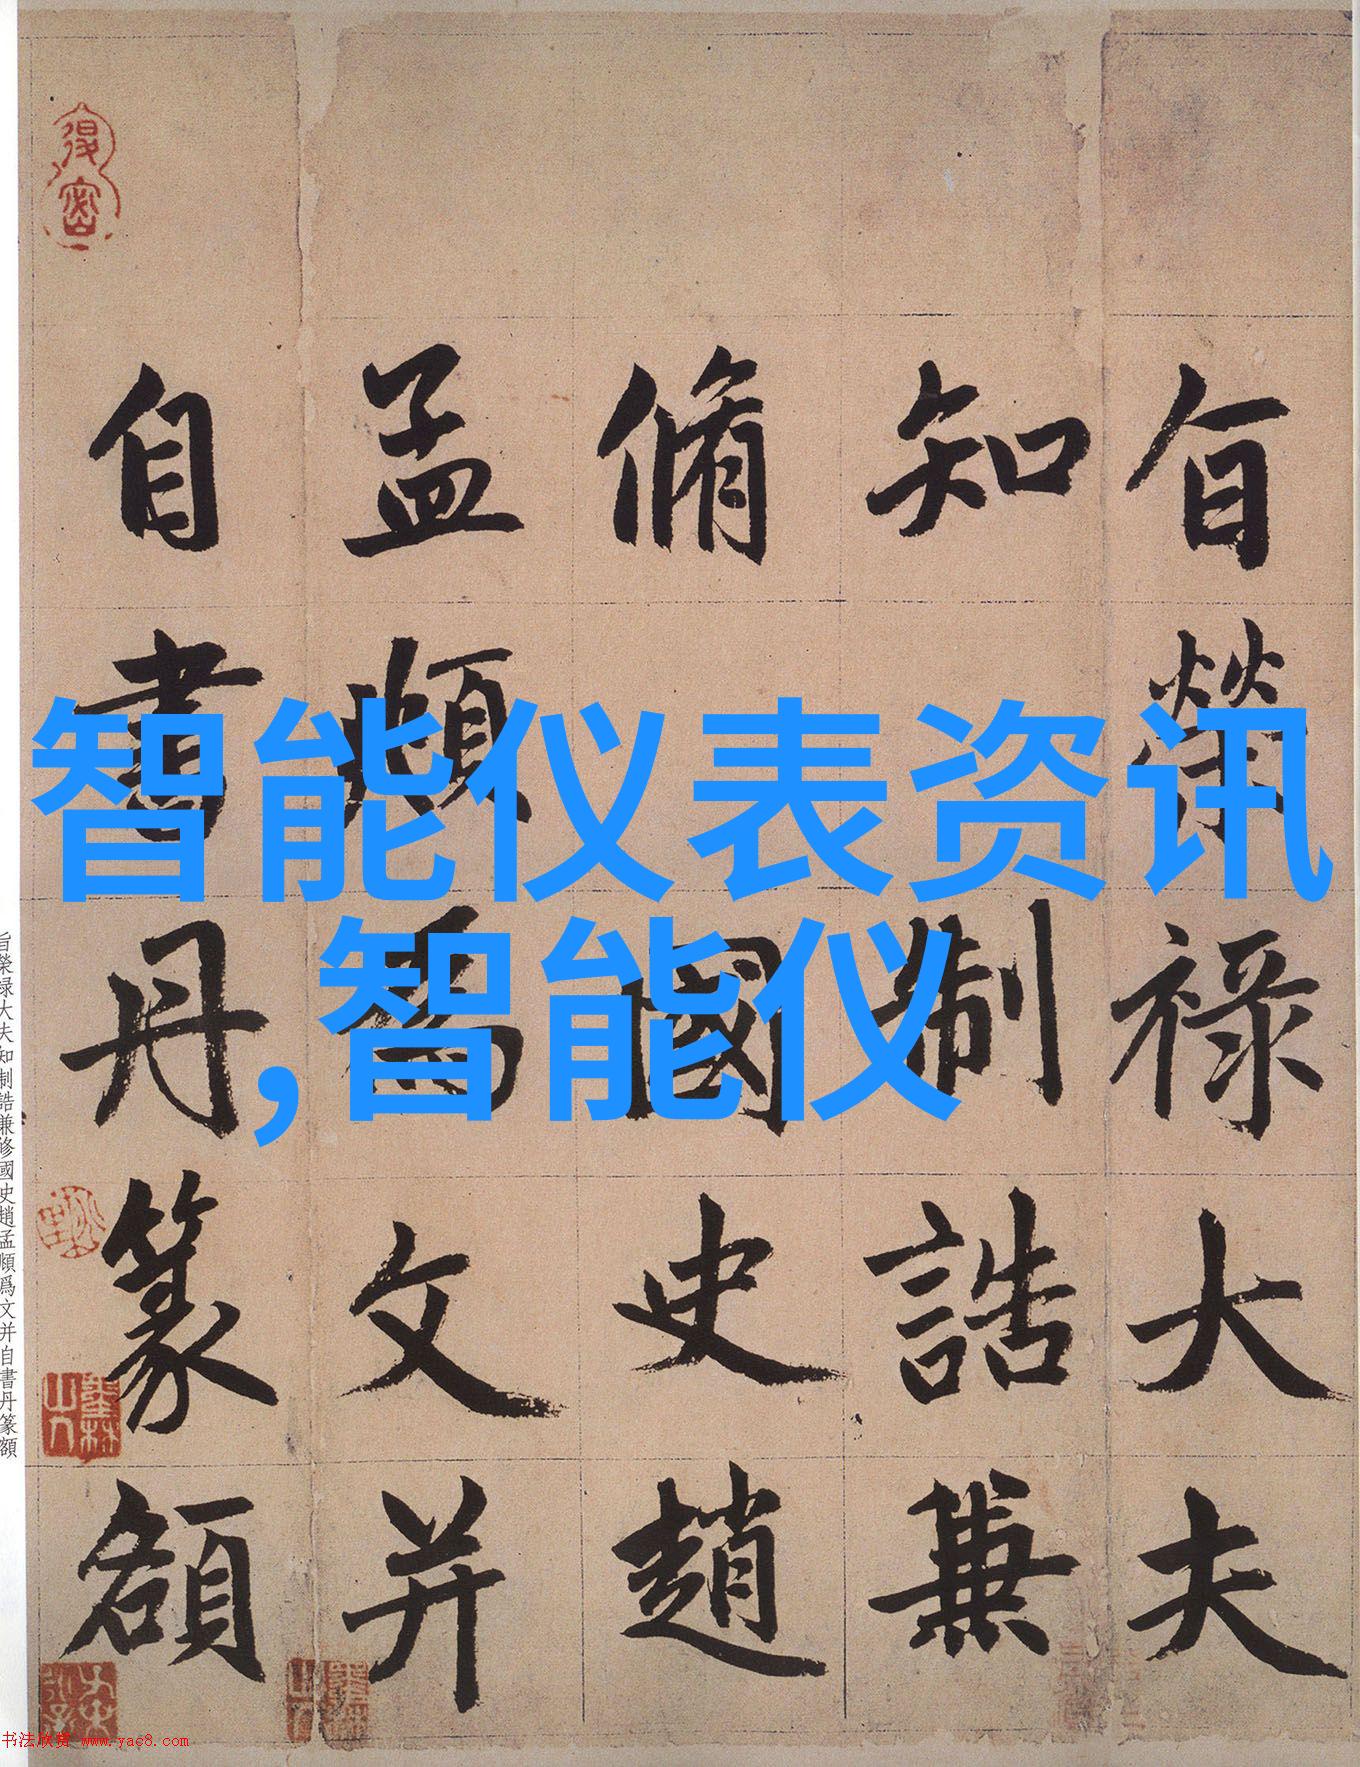 旨榮祿大夫
知制誥兼
脩國史趙
孟頫爲文并
自書丹篆額
智能仪表资讯
,智能仪
旨榮禄大夫知制誥兼修國史趙孟頫爲文并自書丹篆額
书法欣赏 www.yac8.com